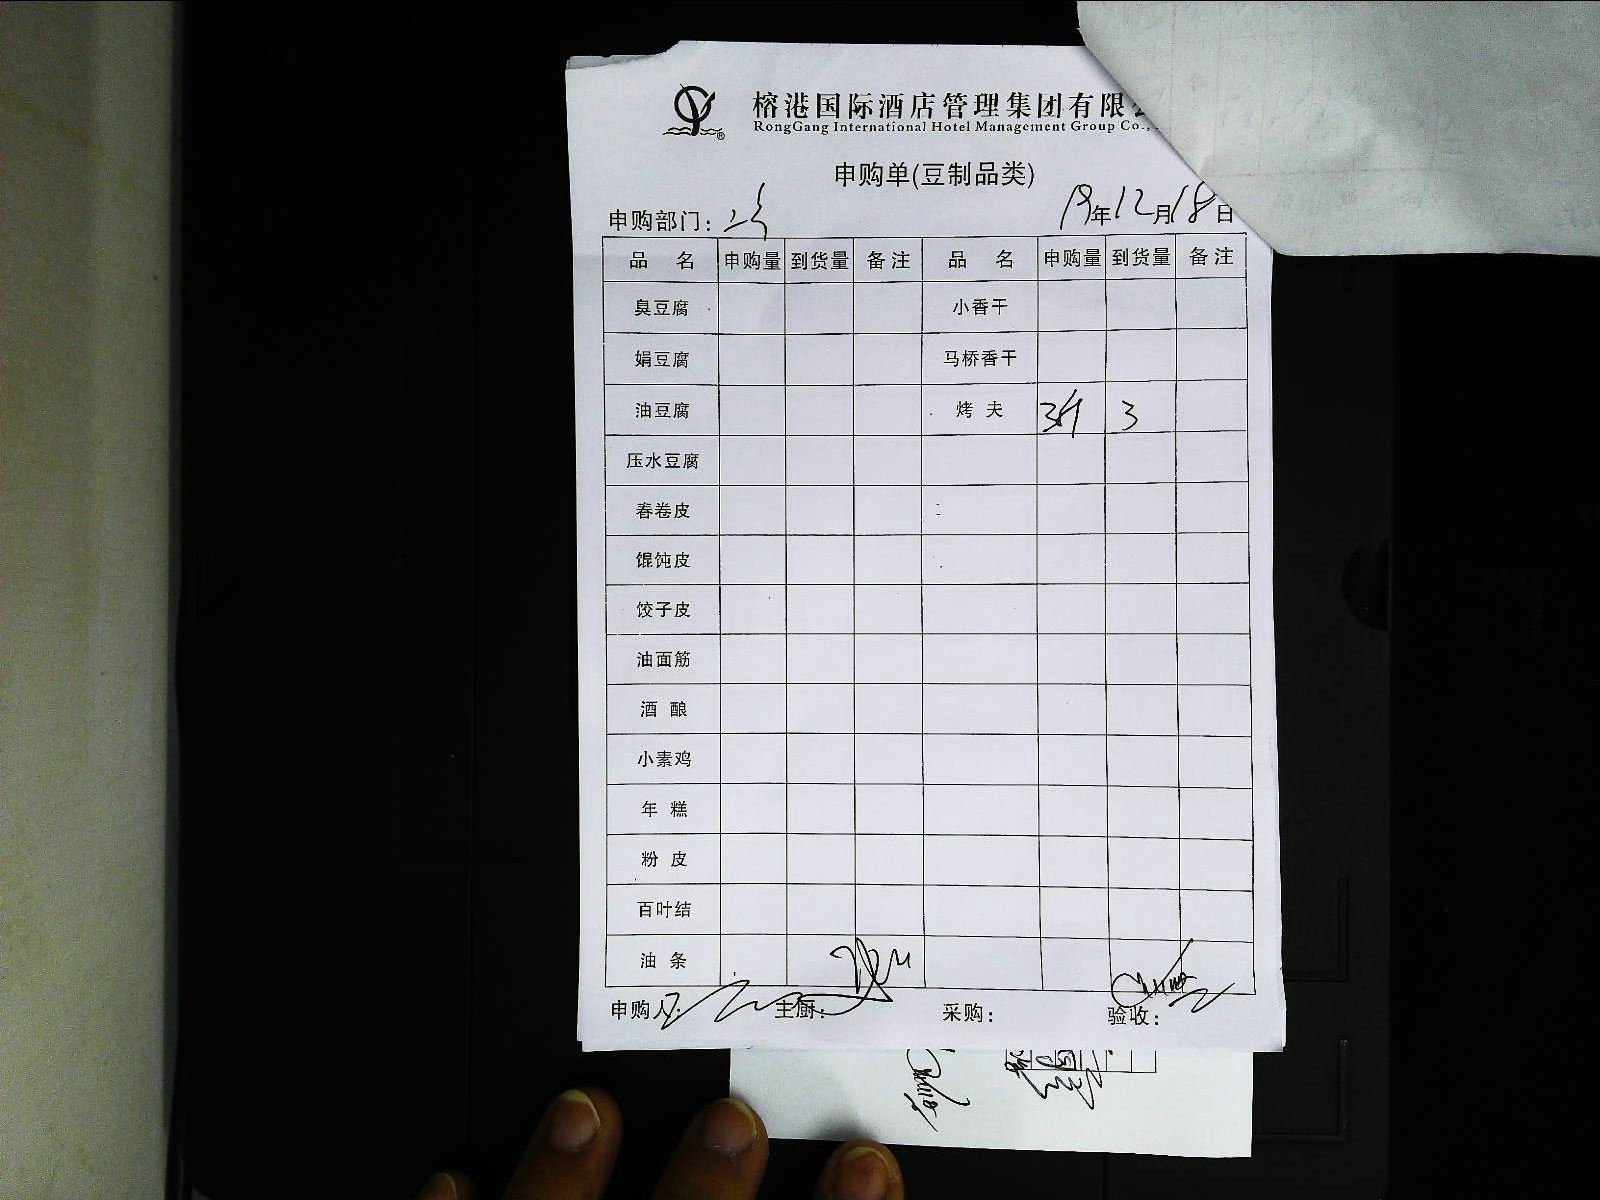 榕港国际酒店管理集团有限
RongGang International Hotel Management Group Co.,
申购单(豆制品类)
申购部门: 19年12月18日
品 名 申购量 到货量 备注 品 名 申购量 到货量 备注
臭豆腐 小香干
娟豆腐 马桥香干
油豆腐 烤 夫 3斤 3
压水豆腐
春卷皮
馄饨皮
饺子皮
油面筋
酒 酿
小素鸡
年 糕
粉 皮
百叶结
油 条
申购人: 主厨: 采购: 验收: